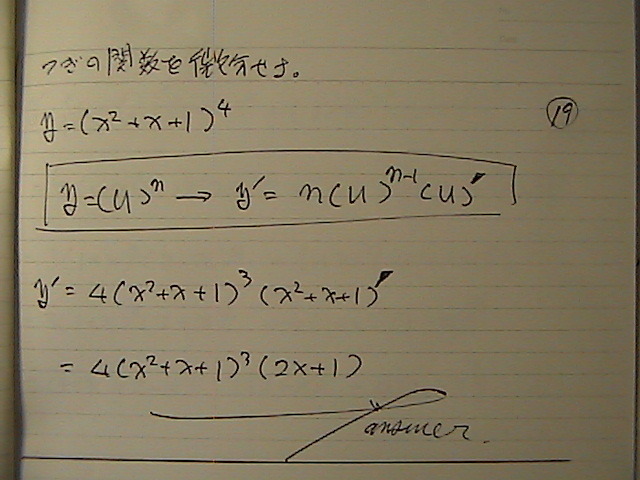 つぎの関数を微分せよ。
y=(x²+x+1)⁴
⑲
y=(u)ⁿ → y′= n(u)ⁿ⁻¹(u)′
y′= 4(x²+x+1)³(x²+x+1)′
= 4(x²+x+1)³(2x+1)
answer.